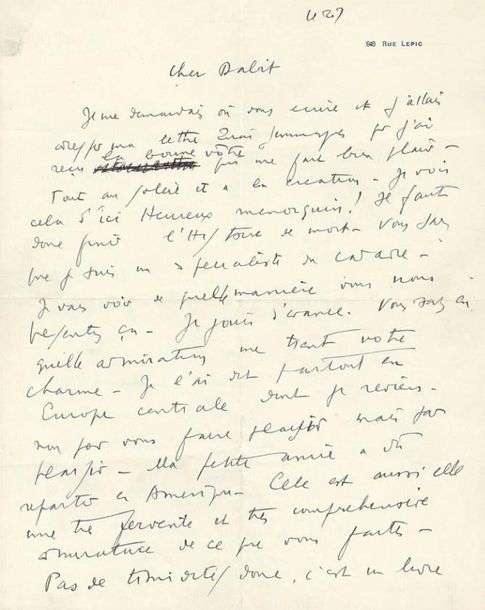 98 RUE LEPIC
Cher Dabit
Je me demandais où vous écrire et j'allais
adresser ma lettre Quai Jemmapes j'ai
reçu la bonne vôtre qui me fait bien plaisir -
Tout au soleil et à la création - Je vois
cela d'ici Heureux menorquin! Il faut
donc finir l'Histoire de mort - Vous savez
que je suis un spécialiste du cadavre -
Je vais voir de quelle manière vous nous
présentez ça - Je jouis d'avance. Vous savez en
quelle admiration me tient votre
charme - Je l'ai dit partout en
Europe centrale dont je reviens -
non pour vous faire plaisir mais par
plaisir - Ma petite amie a dû
repartir en Amérique - Elle est aussi elle
une très fervente et très compréhensive
admiratrice de ce que vous faites -
Pas de timidité donc, c'est un livre